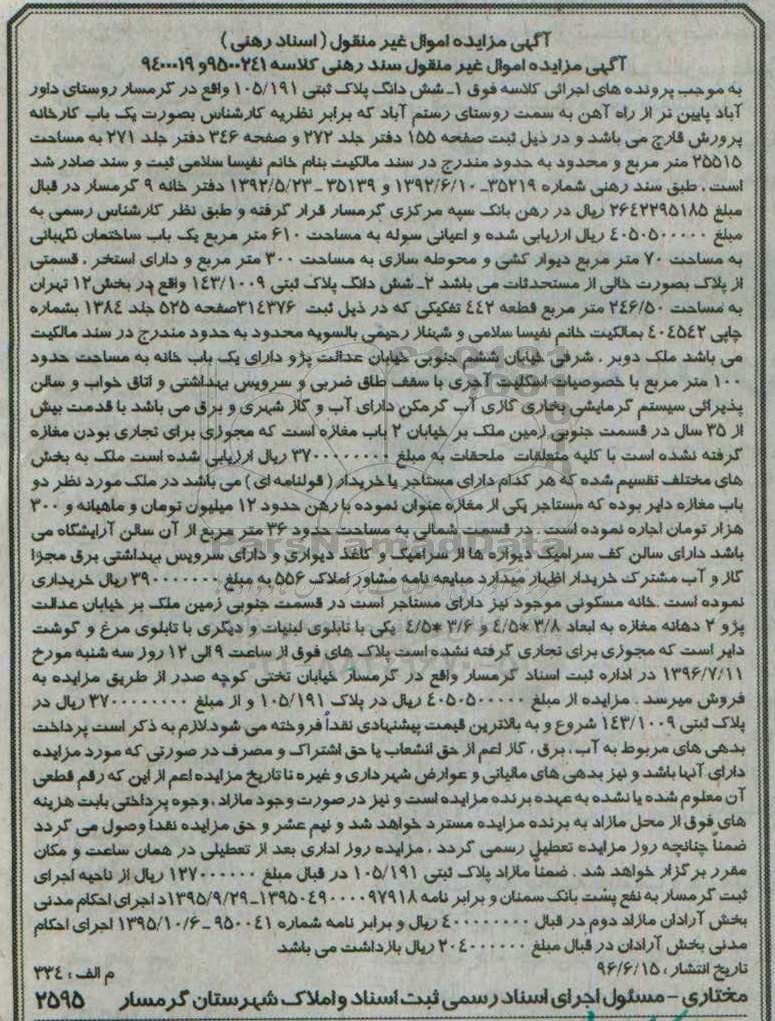 آگهی مزایده اموال غیر منقول ( اسناد رهنی )
آگهی مزایده اموال غیر منقول سند رهنی کلاسه ۹۵۰۰۲۴۱و ۹۴۰۰۰۱۹
به موجب پرونده های اجرائی کلاسه فوق ۱ـ شش دانگ پلاک ثبتی ۱۰۵/۱۹۱ واقع در گرمسار روستای داور
آباد پایین تر از راه آهن به سمت روستای رستم آباد که برابر نظریه کارشناس بصورت یک باب کارخانه
پرورش قارچ می باشد و در ذیل ثبت صفحه ۱۵۵ دفتر جلد ۲۷۲ و صفحه ۳۴۶ دفتر جلد ۲۷۱ به مساحت
۲۵۵۱۵ متر مربع و محدود به حدود مندرج در سند مالکیت بنام خانم نفیسا سلامی ثبت و سند صادر شد
است . طبق سند رهنی شماره ۳۵۲۱۹ـ ۱۳۹۲/۶/۱۰ و ۳۵۱۳۹ ـ ۱۳۹۲/۵/۲۳ دفتر خانه ۹ گرمسار در قبال
مبلغ ۲۶۴۲۲۹۵۱۸۵ ریال در رهن بانک سپه مرکزی گرمسار قرار گرفته و طبق نظر کارشناس رسمی به
مبلغ ۴۰۵۰۵۰۰۰۰۰ ریال ارزیابی شده و اعیانی سوله به مساحت ۶۱۰ متر مربع یک باب ساختمان نگهبانی
به مساحت ۷۰ متر مربع دیوار کشی و محوطه سازی به مساحت ۳۰۰ متر مربع و دارای استخر . قسمتی
از پلاک بصورت خالی از مستحدثات می باشد ۲ـ شش دانگ پلاک ثبتی ۱۴۳/۱۰۰۹ واقع در بخش ۱۲ تهران
به مساحت ۲۴۶/۵۰ متر مربع قطعه ۴۴۲ تفکیکی که در ذیل ثبت ۳۱۴۳۷۶صفحه ۵۲۵ جلد ۱۳۸۴ بشماره
چاپی ۴۰۴۵۴۲ بمالکیت خانم نفیسا سلامی و شهناز رحیمی بالسویه محدود به حدود مندرج در سند مالکیت
می باشد ملک دوبر . شرقی خیابان ششم جنوبی خیابان عدالت پژو دارای یک باب خانه به مساحت حدود
۱۰۰ متر مربع با خصوصیات اسکلیت آجری با سقف طاق ضربی و سرویس بهداشتی و اتاق خواب و سالن
پذیرائی سیستم گرمایشی بخاری گازی آب گرمکن دارای آب و گاز شهری و برق می باشد با قدمت بیش
از ۳۵ سال در قسمت جنوبی زمین ملک بر خیابان ۲ باب مغازه است که مجوزی برای تجاری بودن مغازه
گرفته نشده است با کلیه متعلقات ملحقات به مبلغ ۳۷۰۰۰۰۰۰۰۰۰ ریال ارزیابی شده است ملک به بخش
های مختلف تقسیم شده که هر کدام دارای مستاجر یا خریدار ( قولنامه ای ) می باشد در ملک مورد نظر دو
باب مغازه دایر بوده که مستاجر یکی از مغازه عنوان نموده با رهن حدود ۱۲ میلیون تومان و ماهیانه و ۳۰۰
هزار تومان اجاره نموده است در قسمت شمالی به مساحت حدود ۳۶ متر مربع از آن سالن آرایشگاه می
باشد دارای سالن کف سرامیک دیواره ها از سرامیک و کاغذ دیواری و دارای سرویس بهداشتی برق مجزا
گاز و آب مشترک خریدار اظهار میدارد مبایعه نامه مشاور املاک ۵۵۶ به مبلغ ۳۹۰۰۰۰۰۰۰۰ ریال خریداری
نموده است .خانه مسکونی موجود نیز دارای مستاجر است در قسمت جنوبی زمین ملک بر خیابان عدالت
پژو ۲ دهانه مغازه به ابعاد ۳/۸ *۴/۵ و ۳/۶ *۴/۵ یکی با تابلوی لبنیات و دیگری با تابلوی مرغ و گوشت
دایر است که مجوزی برای تجاری گرفته نشده است پلاک های فوق از ساعت ۹ الی ۱۲ روز سه شنبه مورخ
۱۳۹۶/۷/۱۱ در اداره ثبت اسناد گرمسار واقع در گرمسار خیابان تختی کوچه صدر از طریق مزایده به
فروش میرسد . مزایده از مبلغ ۴۰۵۰۵۰۰۰۰۰ ریال در پلاک ۱۰۵/۱۹۱ و از مبلغ ۳۷۰۰۰۰۰۰۰۰۰ ریال در
پلاک ثبتی ۱۴۳/۱۰۰۹ شروع و به بالاترین قیمت پیشنهادی نقداً فروخته می شود.لازم به ذکر است پرداخت
بدهی های مربوط به آب ، برق ، گاز اعم از حق انشعاب یا حق اشتراک و مصرف در صورتی که مورد مزایده
دارای آنها باشد و نیز بدهی های مالیاتی و عوارض شهرداری و غیره تا تاریخ مزایده اعم از این که رقم قطعی
آن معلوم شده یا نشده به عهده برنده مزایده است و نیز در صورت وجود مازاد ، وجوه پرداختی بابت هزینه
های فوق از محل مازاد به برنده مزایده مسترد خواهد شد و نیم عشر و حق مزایده نقداً وصول می گردد
ضمناً چنانچه روز مزایده تعطیل رسمی گردد ، مزایده روز اداری بعد از تعطیلی در همان ساعت و مکان
مقرر برگزار خواهد شد . ضمناً مازاد پلاک ثبتی ۱۰۵/۱۹۱ در قبال مبلغ ۱۲۷۰۰۰۰۰۰ ریال از ناحیه اجرای
ثبت گرمسار به نفع پست بانک سمنان و برابر نامه ۱۳۹۵۰۴۹۰۰۰۰۹۷۹۱۸ـ۱۳۹۵/۹/۲۹د اجرای احکام مدنی
بخش آرادان مازاد دوم در قبال ۴۰۰۰۰۰۰۰۰ ریال و برابر نامه شماره ۹۵۰۰۴۱ ـ ۱۳۹۵/۱۰/۶ اجرای احکام
مدنی بخش آرادان در قبال مبلغ ۲۰۴۰۰۰۰۰۰ ریال بازداشت می باشد
تاریخ انتشار : ۹۶/۶/۱۵ م الف : ۳۳۴
مختاری - مسئول اجرای اسناد رسمی ثبت اسناد و املاک شهرستان گرمسار ۲۵۹۵